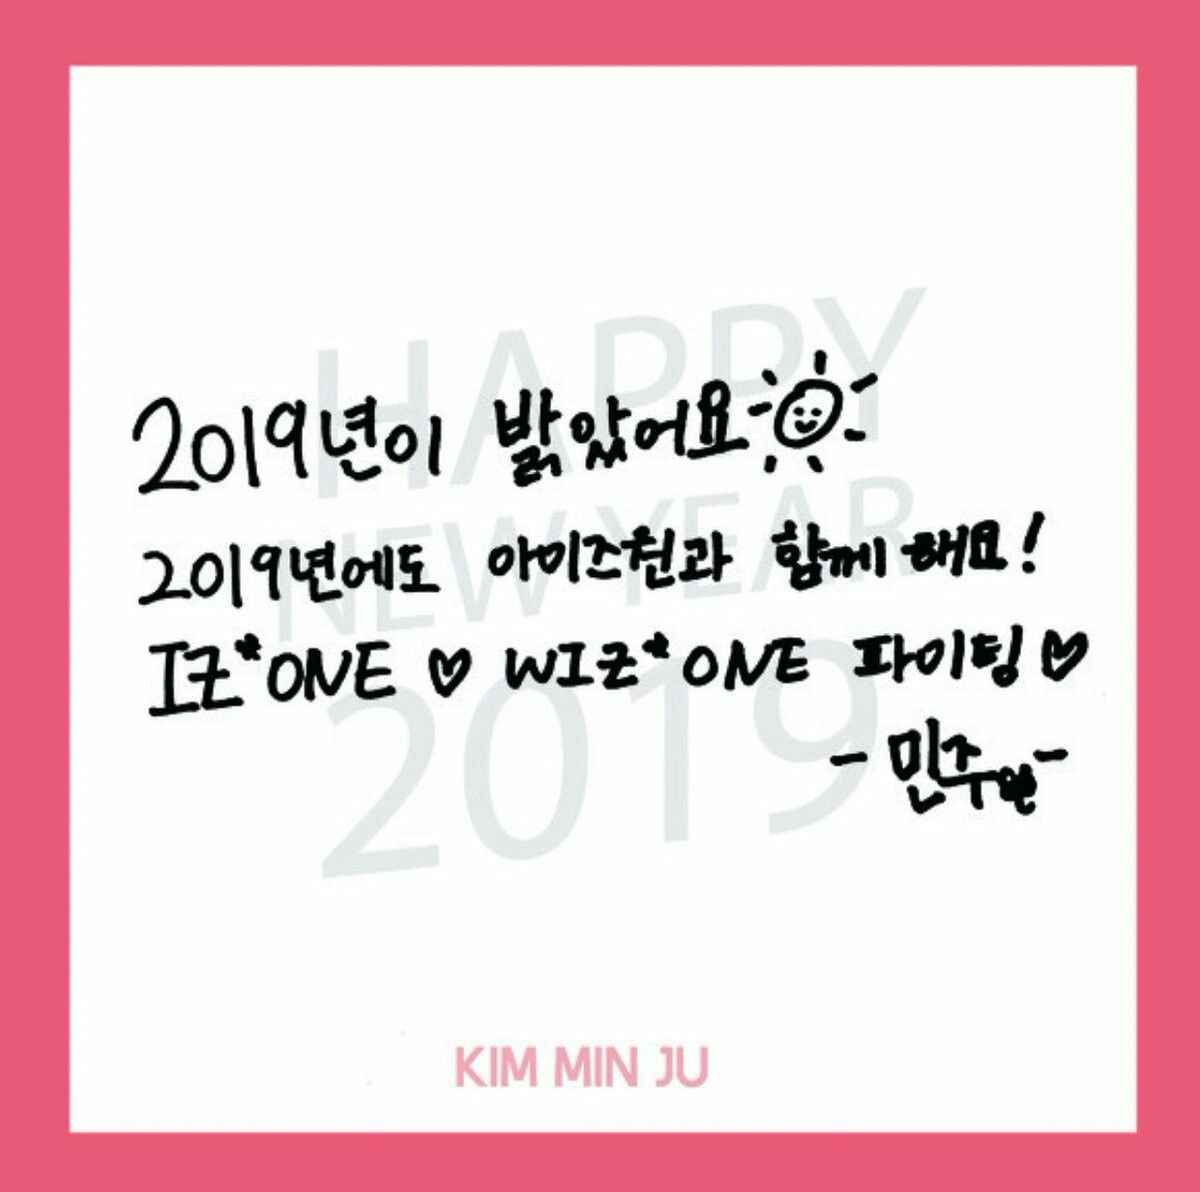 HAPPY
NEW YEAR
2019
2019년이 밝았어요
2019년에도 아이즈원과 함께해요!
IZ*ONE ♡ WIZ*ONE 파이팅♡
- 민주 -
KIM MIN JU